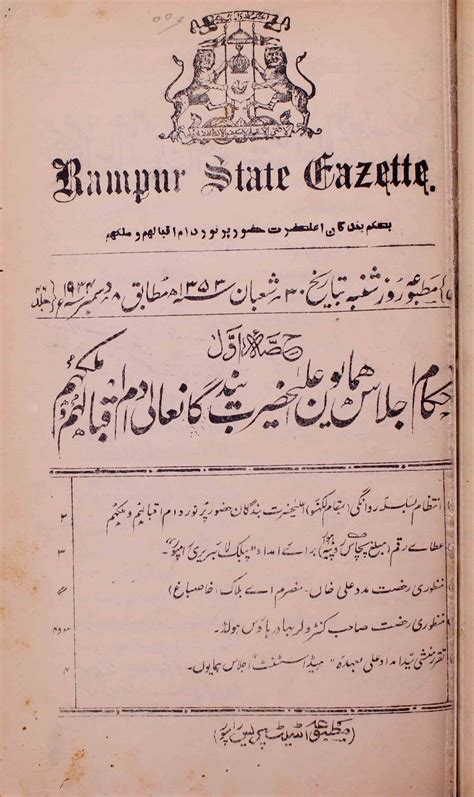 Rampur State Gazette.
بحکم بندگان اعلیٰحضرت حضور پرنور دام اقبالہم و ملکہم
مطبوعہ روز شنبہ بتاریخ ۳۰ شعبان سنہ ۱۳۵۳ھ مطابق ۸ دسمبر سنہ ۱۹۳۴ء جلد ۴۶
حصہ اوّل
احکام اجلاس ہمایون اعلیٰحضرت بندگانعالی دام اقبالہم و ملکہم
انتظام بسلسلہ روانگی (بمقام لکھنؤ) اعلیٰحضرت بندگان حضور پرنور دام اقبالہم و ملکہم ۲
عطائے رقم (مبلغ پچاس روپیہ) برائے امداد "پبلک لائبریری رامپور"۔ ۳
منظوری رخصت مدد علی خاں۔ منصرم اے بلاک (خاصباغ)
منظوری رخصت صاحب کنٹرولر بہادر ہاؤس ہولڈ۔
تقرر منشی سید امداد علی بعہدہ "ہیڈ اسسٹنٹ" اجلاس ہمایوں۔ ۴
(مطبوعہ اسٹیٹ پریس رامپور)